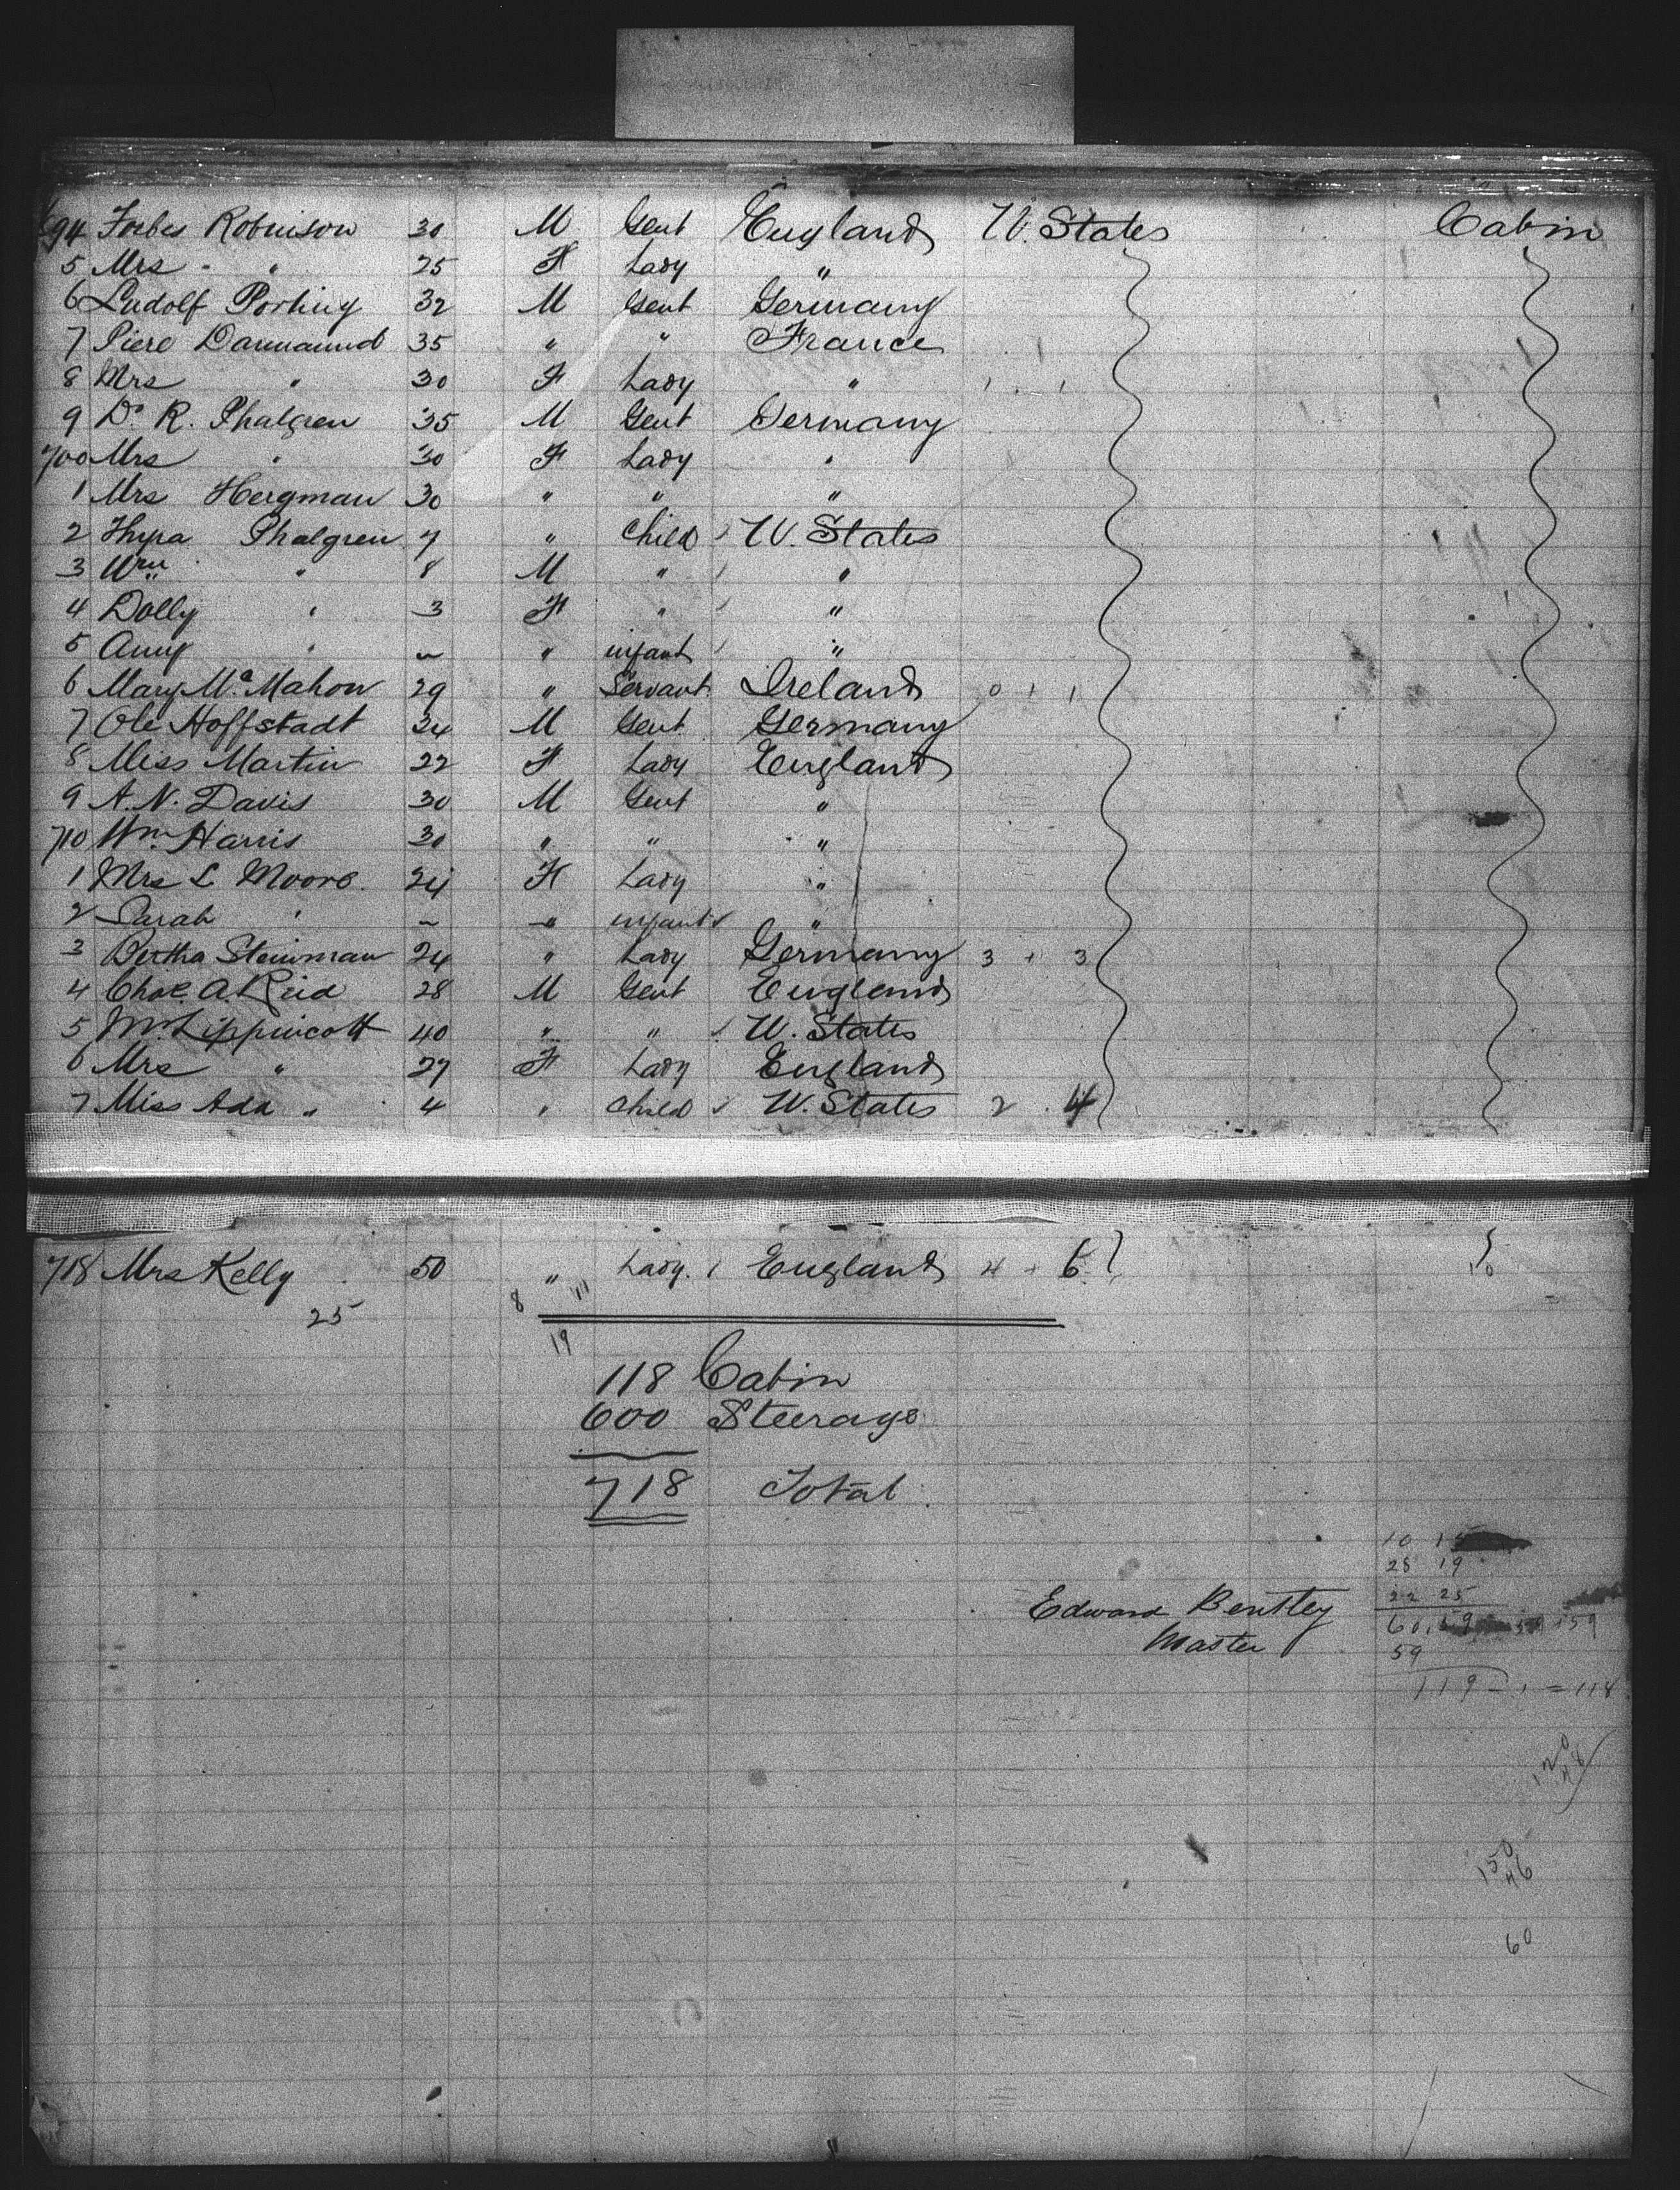 694 Forbes Robinson 30 M Gent England U. States Cabin
5 Mrs " 25 F Lady "
6 Ludolf Porting 32 M Gent Germany
7 Piere Darmaund 35 " " France
8 Mrs " 30 F Lady "
9 Dr R. Phalgren 35 M Gent Germany
700 Mrs " 30 F Lady "
1 Mrs Hergman 30 " " "
2 Phalgren 7 " Child U. States
3 Wm " 8 M " "
4 Dolly " 3 F " "
5 Amy " ~ " infant "
6 Mary McMahon 29 " Servant Ireland 0 + 1
7 Ole Hoffstadt 24 M Gent Germany
8 Miss Martin 22 F Lady England
9 A. N. Davis 30 M Gent "
710 Wm Harris 30 " " "
1 Mrs L Moore 24 F Lady "
2 Sarah " ~ " infant "
3 Bertha Steinman 24 " Lady Germany 3 + 3
4 Chas. A. Reid 28 M Gent England
5 Mr. Lippincott 40 " " U. States
6 Mrs " 27 F Lady England
7 Miss Ada " 4 " Child U. States 2 . 4
718 Mrs Kelly 50 " Lady. England 4 + 6
25 8 11
19
118 Cabin
600 Steerage
718 Total
10 15
28 19
22 25
60 59
59
119 - 1 = 118
Edward Bentley
Master
150
46
60